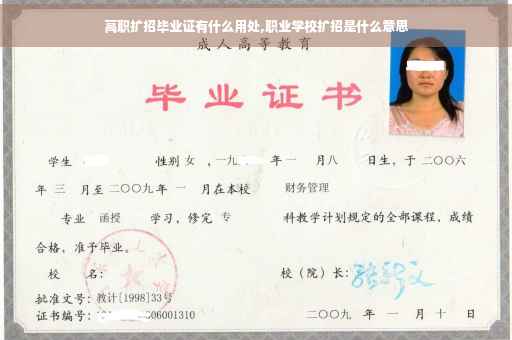 高职扩招毕业证有什么用处,职业学校扩招是什么意思
成人高等教育
毕业证书
学生 性别 女 ，一九 年 一 月 八 日生，于 二〇〇六
年 三 月至 二〇〇九 年 一 月在本校 财务管理
专业 函授 学习，修完 专 科教学计划规定的全部课程，成绩
合格，准予毕业。
校 名： 校（院）长：
批准文号：教计[1998]33号
证书编号： 06001310 二〇〇九 年 一 月 十 日